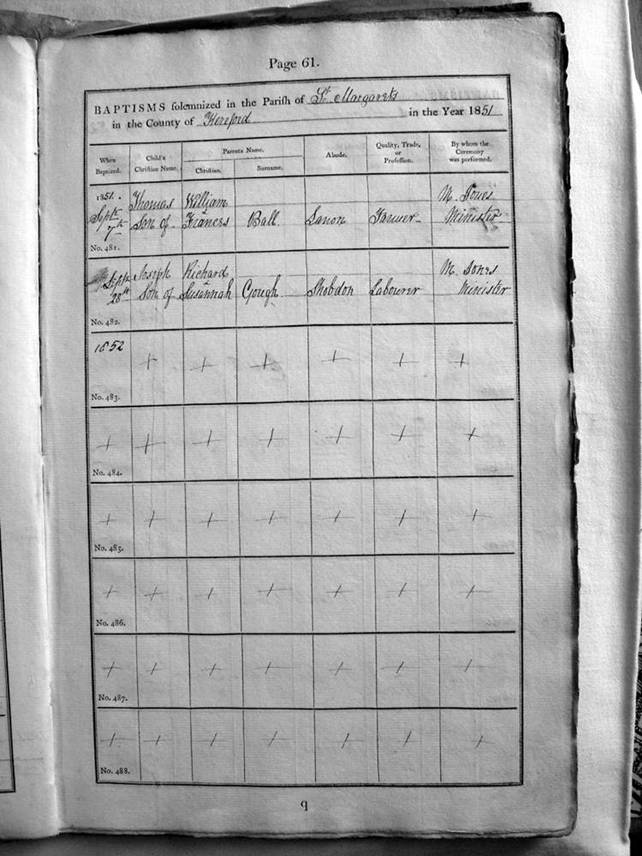 Page 61.
BAPTISMS solemnized in the Parish of St. Margarets
in the County of Hereford in the Year 1851
When Baptized. Child's Christian Name. Parents Name. Christian. Surname. Abode. Quality, Trade, or Profession. By whom the Ceremony was performed.
1851. Thomas William M. Jones
Septr 7th Son of & Frances Ball Lanon Farmer Minister
No. 481.
Septr 28th Joseph Richard M. Jones
Son of & Susannah Gough Shobdon Labourer Minister
No. 482.
1852
No. 483.
No. 484.
No. 485.
No. 486.
No. 487.
No. 488.
9